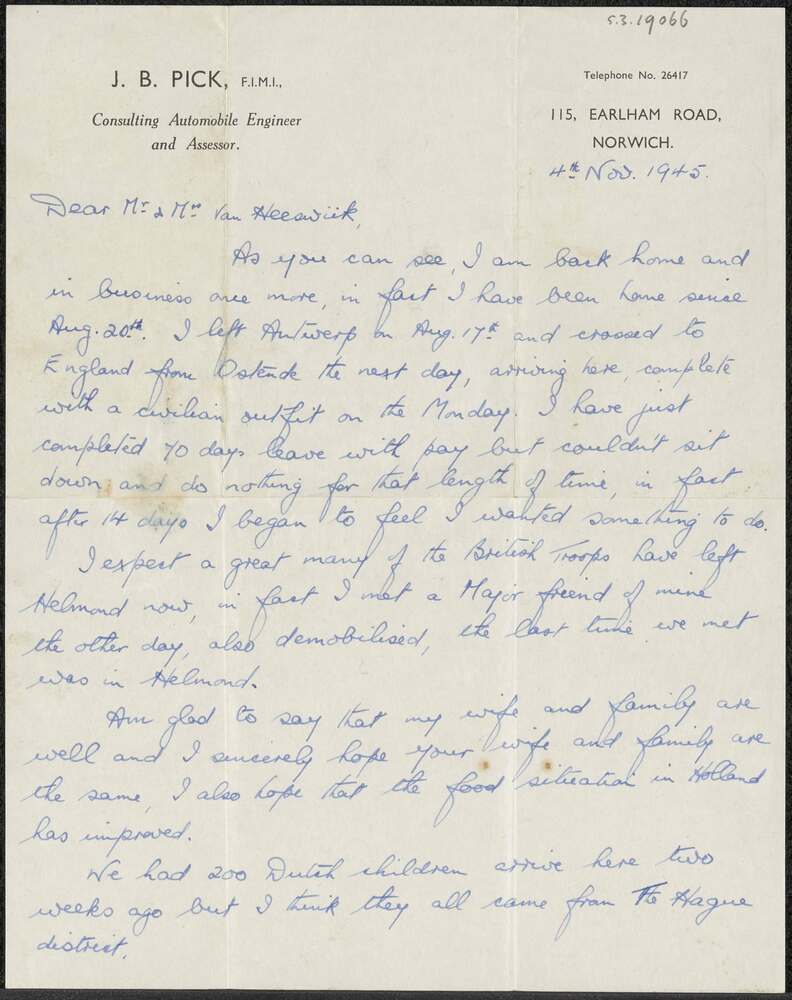 5.3.19066
J. B. PICK, F.I.M.I.,
Consulting Automobile Engineer
and Assessor.
Telephone No. 26417
115, EARLHAM ROAD,
NORWICH.
4th Nov. 1945.
Dear Mr & Mrs Van Heeswijk,
As you can see, I am back home and
in business once more, in fact I have been home since
Aug. 20th. I left Antwerp on Aug. 17th and crossed to
England from Ostende the next day, arriving here, complete
with a civilian outfit on the Monday. I have just
completed 70 days leave with pay but couldn't sit
down and do nothing for that length of time, in fact
after 14 days I began to feel I wanted something to do.
I expect a great many of the British Troops have left
Helmond now, in fact I met a Major friend of mine
the other day, also demobilised, the last time we met
was in Helmond.
Am glad to say that my wife and family are
well and I sincerely hope your wife and family are
the same, I also hope that the food situation in Holland
has improved.
We had 200 Dutch children arrive here two
weeks ago but I think they all came from The Hague
district.